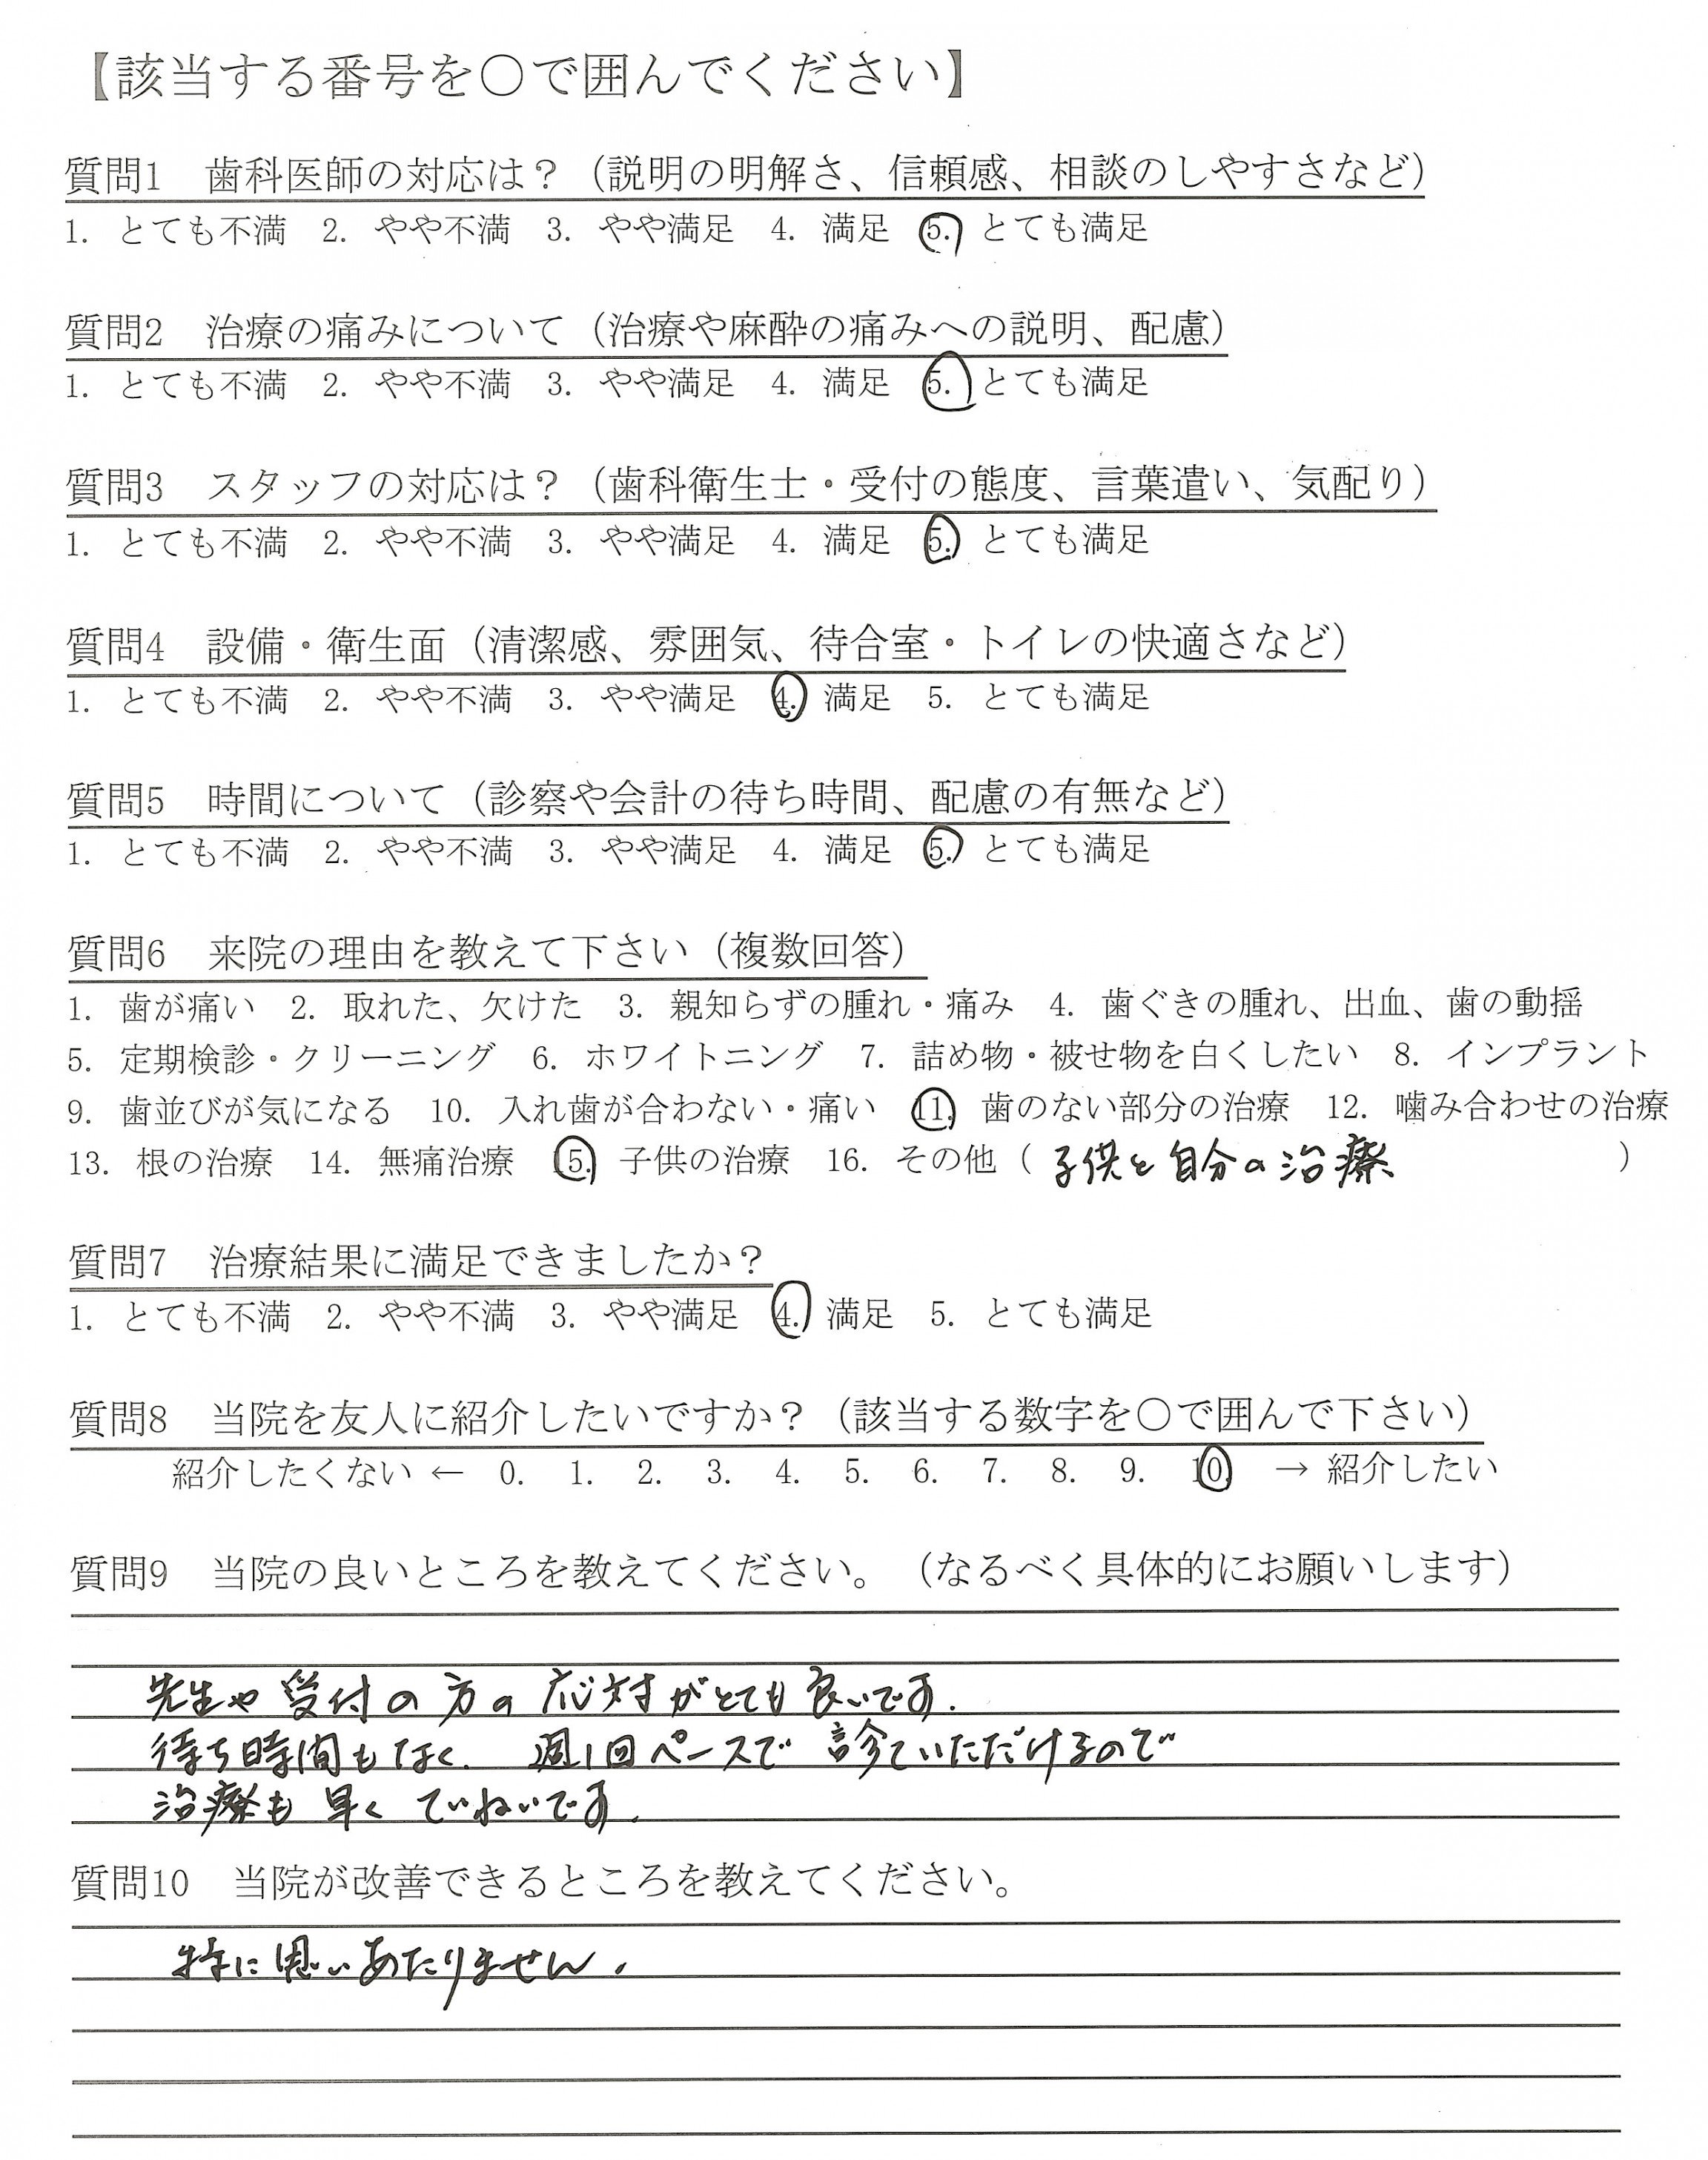 【該当する番号を○で囲んでください】
質問1 歯科医師の対応は？（説明の明解さ、信頼感、相談のしやすさなど）
1. とても不満 2. やや不満 3. やや満足 4. 満足 5. とても満足
質問2 治療の痛みについて（治療や麻酔の痛みへの説明、配慮）
1. とても不満 2. やや不満 3. やや満足 4. 満足 5. とても満足
質問3 スタッフの対応は？（歯科衛生士・受付の態度、言葉遣い、気配り）
1. とても不満 2. やや不満 3. やや満足 4. 満足 5. とても満足
質問4 設備・衛生面（清潔感、雰囲気、待合室・トイレの快適さなど）
1. とても不満 2. やや不満 3. やや満足 4. 満足 5. とても満足
質問5 時間について（診察や会計の待ち時間、配慮の有無など）
1. とても不満 2. やや不満 3. やや満足 4. 満足 5. とても満足
質問6 来院の理由を教えて下さい（複数回答）
1. 歯が痛い 2. 取れた、欠けた 3. 親知らずの腫れ・痛み 4. 歯ぐきの腫れ、出血、歯の動揺
5. 定期検診・クリーニング 6. ホワイトニング 7. 詰め物・被せ物を白くしたい 8. インプラント
9. 歯並びが気になる 10. 入れ歯が合わない・痛い 11. 歯のない部分の治療 12. 噛み合わせの治療
13. 根の治療 14. 無痛治療 15. 子供の治療 16. その他（子供と自分の治療）
質問7 治療結果に満足できましたか？
1. とても不満 2. やや不満 3. やや満足 4. 満足 5. とても満足
質問8 当院を友人に紹介したいですか？（該当する数字を○で囲んで下さい）
紹介したくない ← 0. 1. 2. 3. 4. 5. 6. 7. 8. 9. 10. → 紹介したい
質問9 当院の良いところを教えてください。（なるべく具体的にお願いします）
先生や受付の方の応対がとても良いです.
待ち時間もなく. 週1回ペースで診ていただけるので
治療も早くていねいです.
質問10 当院が改善できるところを教えてください。
特に思いあたりません.